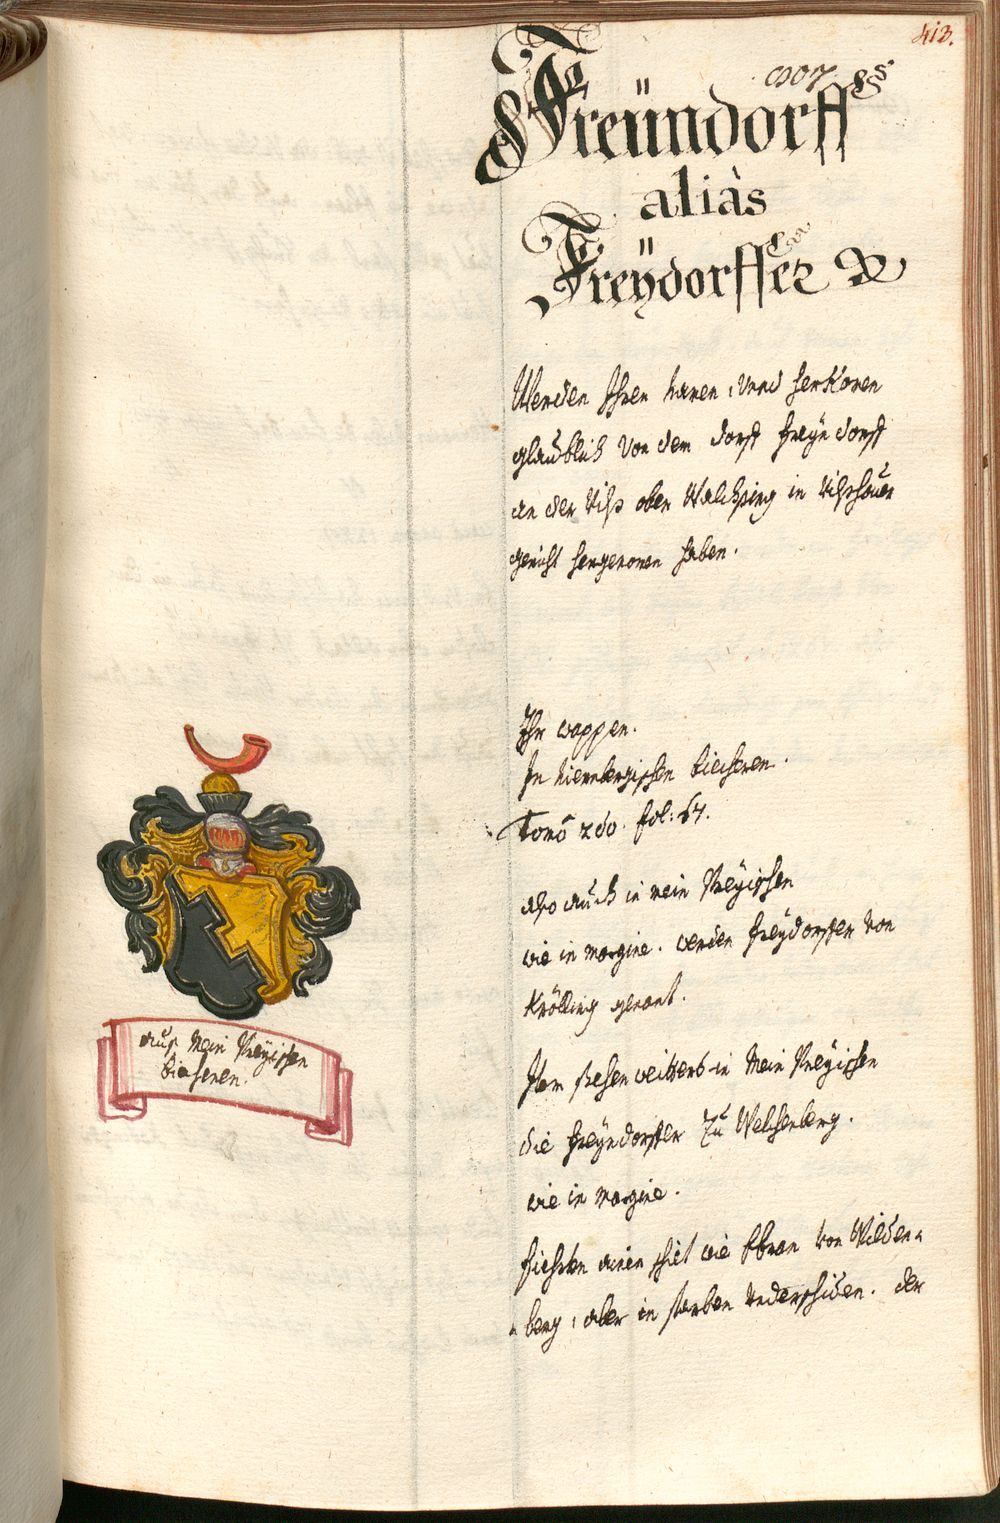 413.
Freündorff
aliàs
Freÿdorffer
Werden Ihren namen, vnnd herkomen
glaublich von dem dorff Freÿndorff
an der Vilß ober Walchsing in Vilßhouer
gericht hergenomen haben.
Ihr wappen.
In Niernbergischen biecheren.
Tomo 260. fol: 67.
also auch in mein Preÿischen
wie in margine. werden Freÿdorffer von
Krölling genant.
Item stehen weitters in Mein Preÿischen
die Freÿndorffer zu Welchenberg.
wie in margine.
fiehrten ainen schilt wie Ebran von Wilden-
berg, aber in farben vnderschiden. der
auß Mein Preÿischen
biecheren.